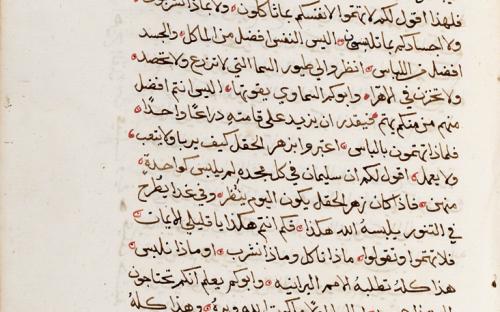 فلهذا اقول لكم لا تهتموا لانفسكم بما تاكلون ولا بماذا تشربون
ولا لاجسادكم بما تلبسون اليس النفس افضل من الماكل والجسد
افضل من اللباس انظروا الي طيور السما التي لا تزرع ولا تحصد
ولا تخزن في الاهرا وابوكم السماوي يقوتها اليس انتم افضل
منهم من منكم يهتم فيقدر ان يزيد علي قامته دراعا واحدا
فلماذا تهتمون باللباس اعتبروا بزهر الحقل كيف يربا ولا يتعب
ولا يعمل اقول لكم ان سليمان في كل مجده لم يلبس كواحدة
منهن فاذا كان زهر الحقل يكون اليوم ينظر وفي غدا يطرح
في التنور يلبسه الله هكذا فكم انتم هكذا يا قليلي الايمان
فلا تهتموا وتقولوا ماذا ناكل وماذا نشرب او ماذا نلبس
هذا كله تطلبه الامم البرانيه وابوكم يعلم انكم تحتاجون